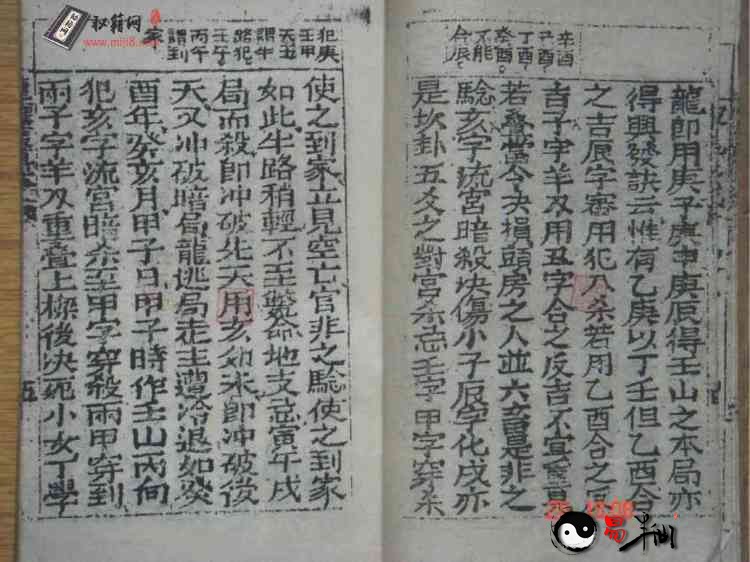 辛酉
丑酉
丁酉
癸酉
不能
合辰
龍即用庚子庚申庚辰得壬山之本局亦
得興發訣云惟有乙庚以丁壬但乙酉合
之吉辰字審用犯八杀若用乙酉合之
吉子字羊刃用丑字合之反吉不宜
若叠當令決損頭房之人並六畜是非之
驗亥字流宫暗殺決傷小子辰字化戌亦
是坎卦五爻之對宫杀忌壬字甲字穿杀
犯庚
壬甲
天丑
謂牛
路犯
壬午
丙午
謂到
家
使之到家立見空亡官非之驗使之到家
如此牛路稍輕不至喪命地支忌寅午戌
局而殺即冲破先天用亥如未即冲破後
天又冲破暗局龍逃局走主遭冷退如癸
酉年癸亥月甲子日甲子時作壬山丙向
犯亥字流宫暗杀至甲字穿殺兩甲穿到
兩子字羊刃重叠上樑後決死小女丁學
五
秘籍网
www.miji8.com
易半仙